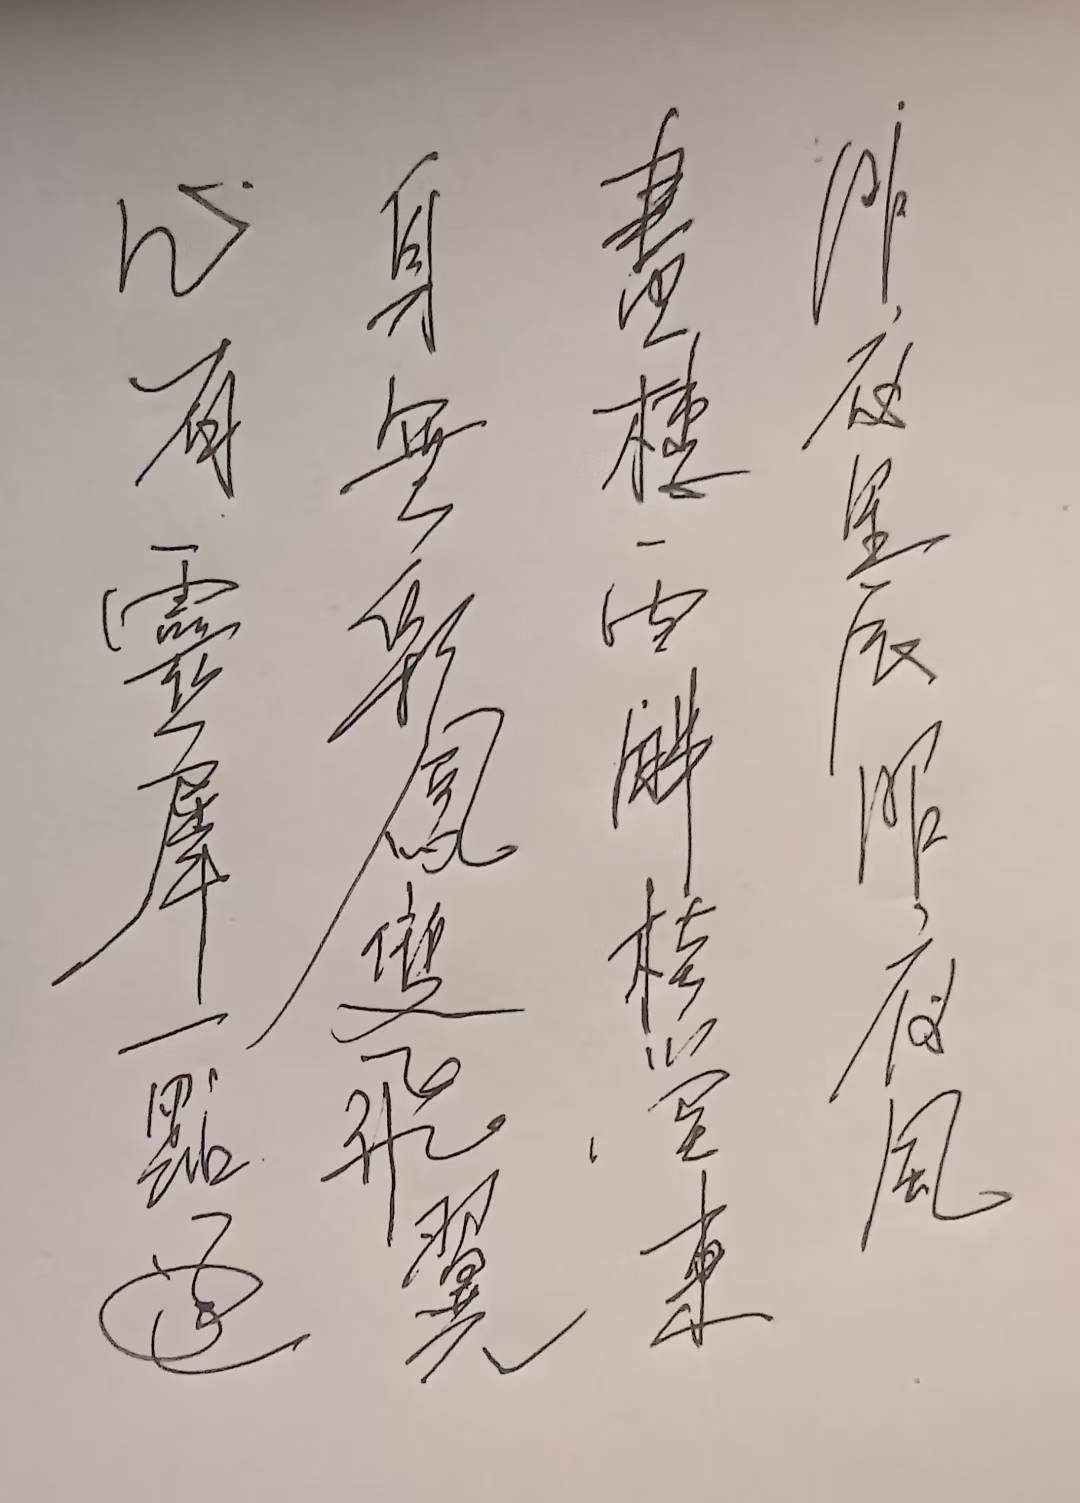 昨夜星辰昨夜風
畫樓西畔桂堂東
身無彩鳳雙飛翼
心有靈犀一點通